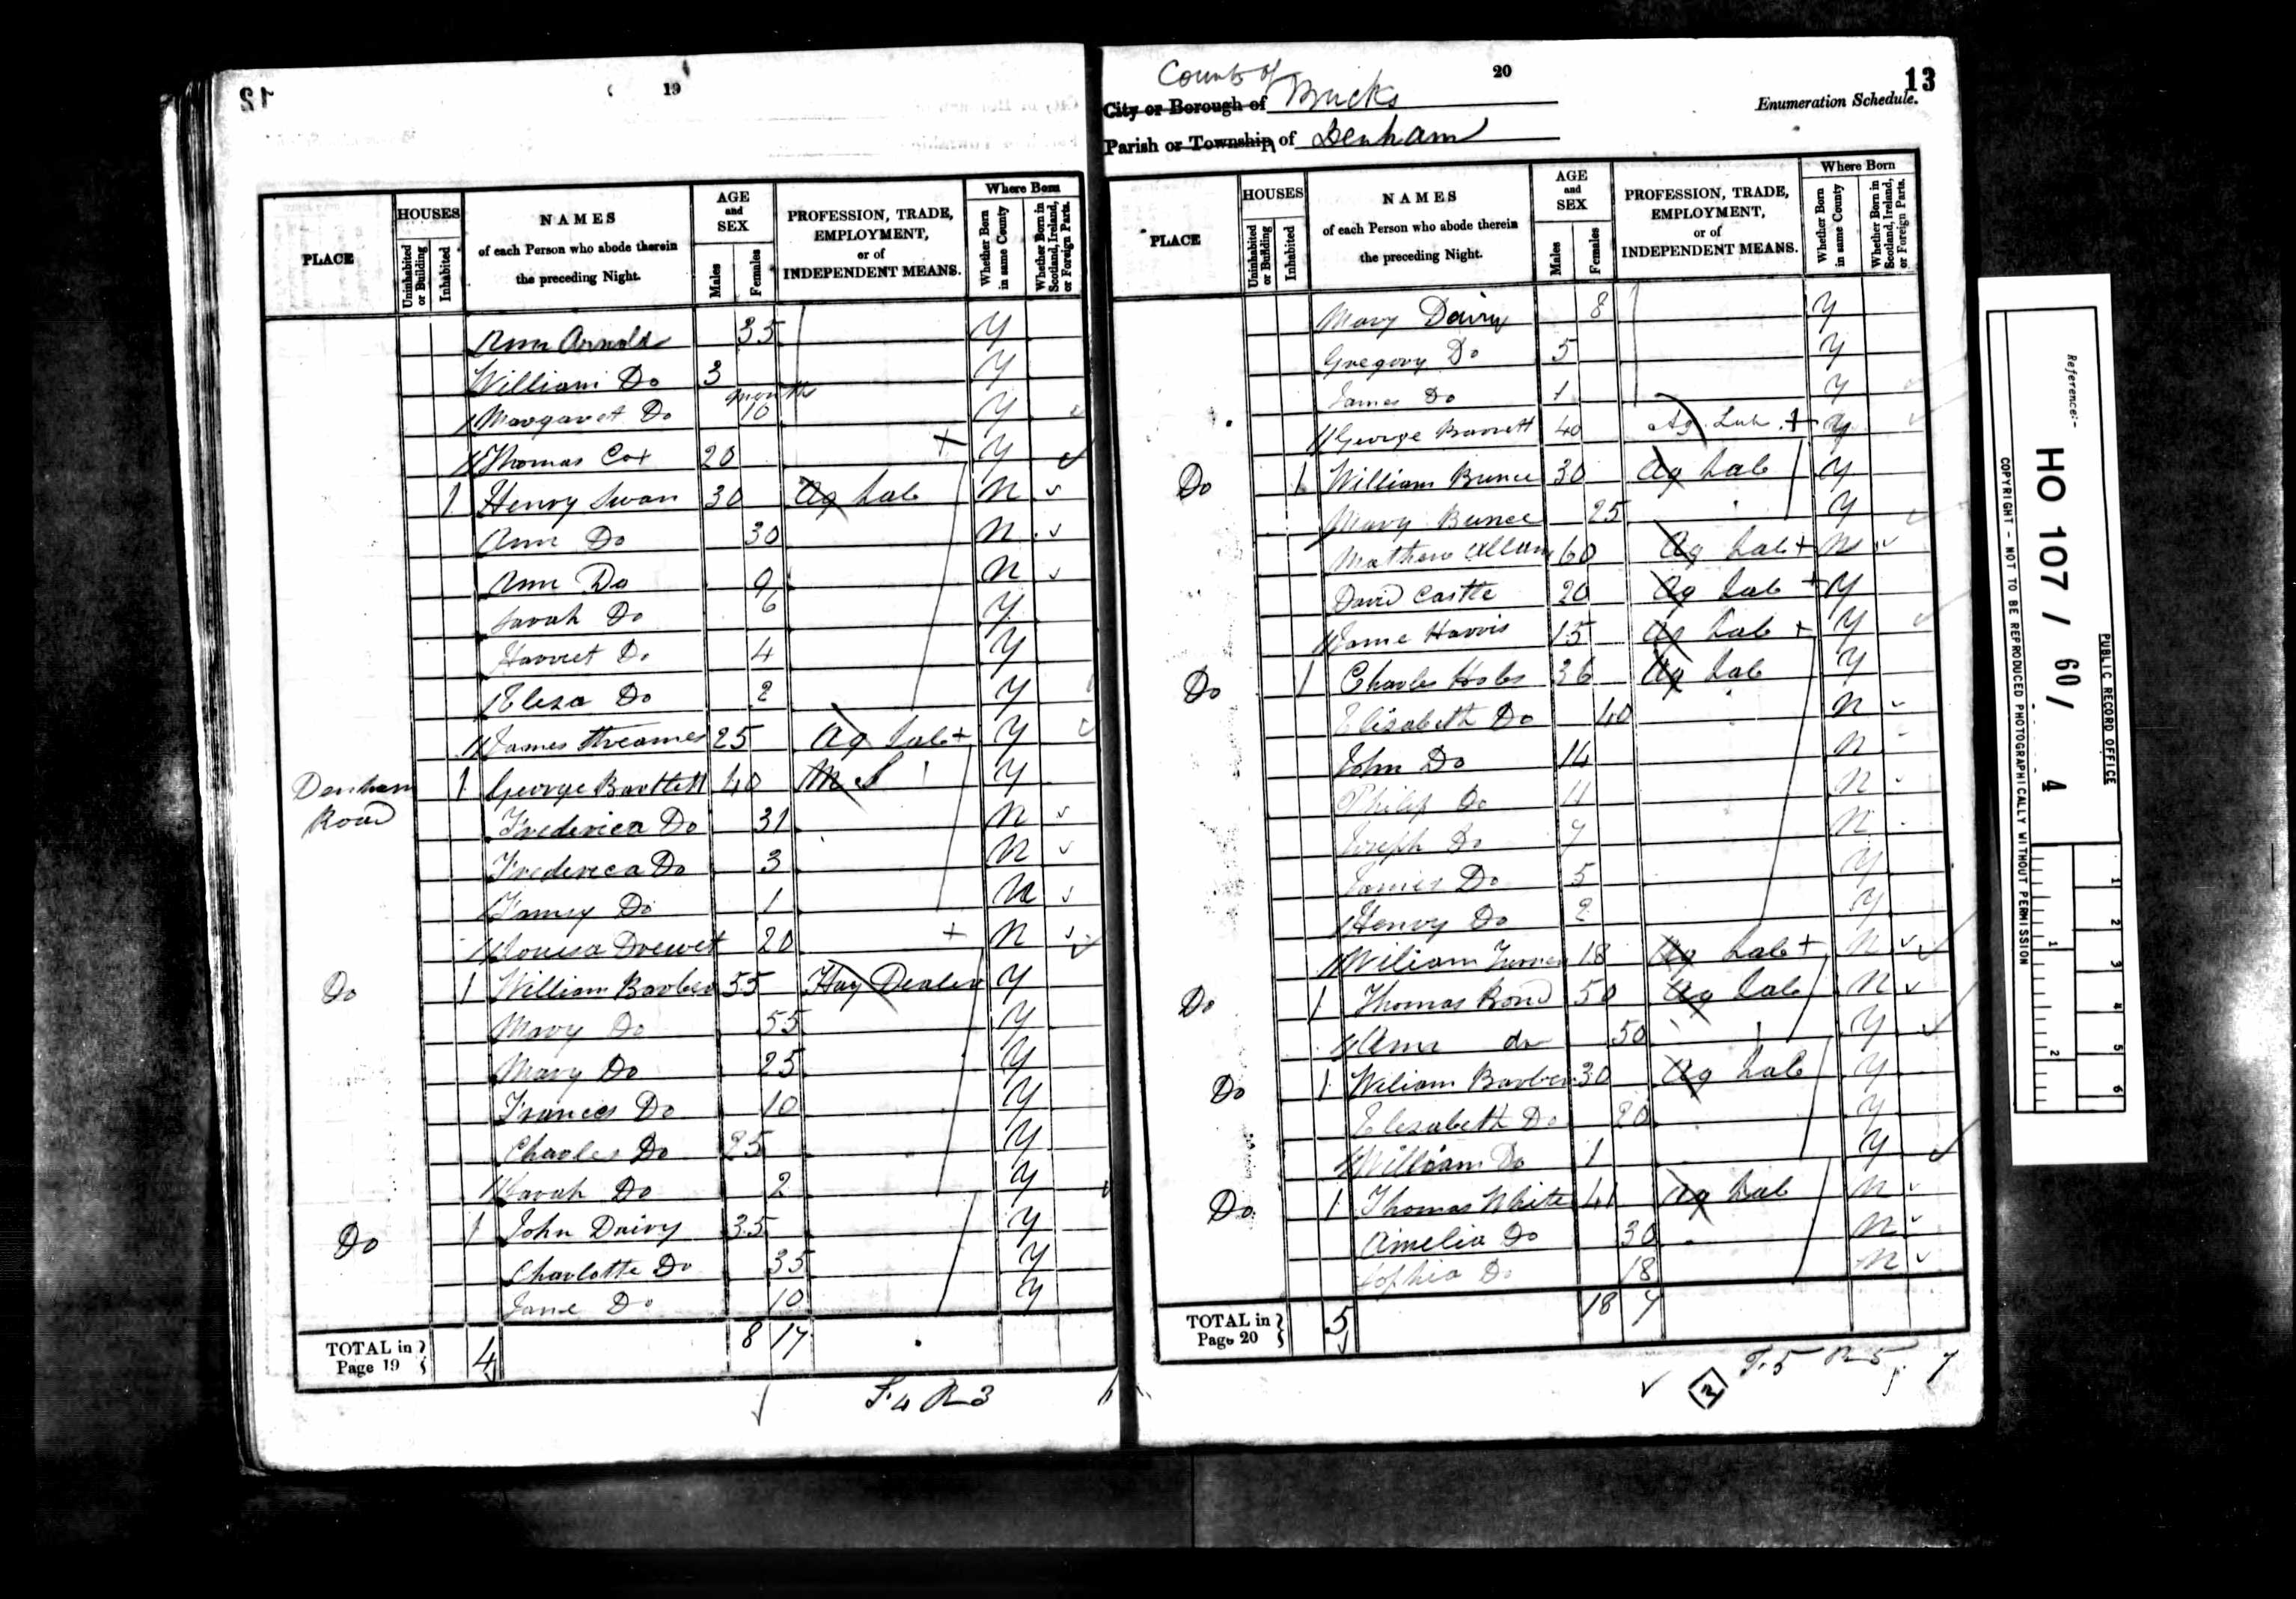 12
19
PLACE
HOUSES
Uninhabited or Building
Inhabited
NAMES
of each Person who abode therein
the preceding Night.
AGE
and
SEX
Males
Females
PROFESSION, TRADE,
EMPLOYMENT,
or of
INDEPENDENT MEANS.
Where Born
Whether Born in same County
Whether Born in Scotland, Ireland, or Foreign Parts.
Ann Arnold 35 Y
William Do 3 Y
Margaret Do 10 month Y
Thomas Cox 20 + Y
1 Henry Swan 30 Ag Lab N
Ann Do 30 N
Ann Do 9 N
Sarah Do 6 Y
Harriet Do 4 Y
Eliza Do 2 Y
James 25 Ag Lab + Y
Denham Road 1 George Bartlett 40 M S Y
Frederica Do 31 N
Frederica Do 3 N
Do 1 N
Louisa Drewet 20 + N
Do 1 William Barber 55 Hay Dealer Y
Mary Do 55 Y
Mary Do 25 Y
Frances Do 10 Y
Charles Do 25 Y
Sarah Do 2 Y
Do 1 John Dairy 35 Y
Charlotte Do 35 Y
Jane Do 10 Y
TOTAL in
Page 19 4 8 17
F. 4 R 3
20
13
County of
City or Borough of Bucks
Enumeration Schedule.
Parish or Township of Denham
PLACE
HOUSES
Uninhabited or Building
Inhabited
NAMES
of each Person who abode therein
the preceding Night.
AGE
and
SEX
Males
Females
PROFESSION, TRADE,
EMPLOYMENT,
or of
INDEPENDENT MEANS.
Where Born
Whether Born in same County
Whether Born in Scotland, Ireland, or Foreign Parts.
Mary Dairy 8 Y
Gregory Do 5 Y
James Do 1 Y
George Barrett 40 Ag. Lab. + Y
Do 1 William Bunce 30 Ag Lab Y
Mary Bunce 25 Y
Mathew Allum 60 Ag Lab + N
David Castle 20 Ag Lab + Y
Jame Harris 15 Ag Lab + Y
Do 1 Charles Hobs 36 Ag Lab Y
Elizabeth Do 40 N
John Do 14 N
Philip Do 11 N
Joseph Do 7 N
James Do 5 Y
Henry Do 2 Y
Wiliam Turner 18 Ag Lab + N
Do 1 Thomas Bond 50 Ag Lab N
Ann do 50 Y
Do 1 Wiliam Barber 30 Ag Lab Y
Elesabeth Do 20 Y
William Do 1 Y
Do 1 Thomas White 41 Ag Lab N
Amelia Do 30 N
Sophia Do 18 N
TOTAL in
Page 20 5 18 7
F. 5 R 5. 7
2
Reference:-
HO 107 / 60 / 4
PUBLIC RECORD OFFICE
COPYRIGHT - NOT TO BE REPRODUCED PHOTOGRAPHICALLY WITHOUT PERMISSION
1
2
3
4
5
6
1
2